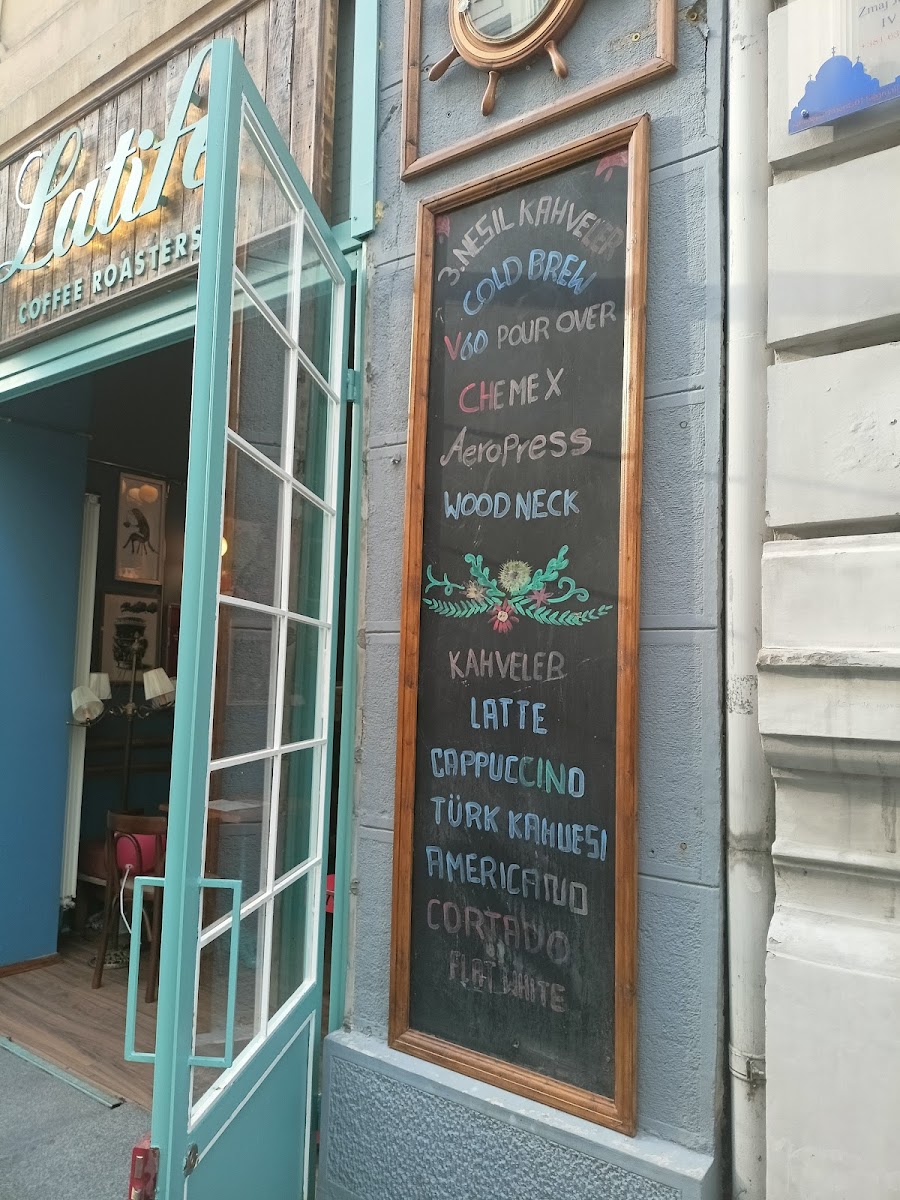 Latife
COFFEE ROASTERS
3.NESIL KAHVELER
COLD BREW
V60 POUR OVER
CHEMEX
AeroPress
WOODNECK
KAHVELER
LATTE
CAPPUCCINO
TÜRK KAHVESI
AMERICANO
CORTADO
FLAT WHITE
Zmaj
IV